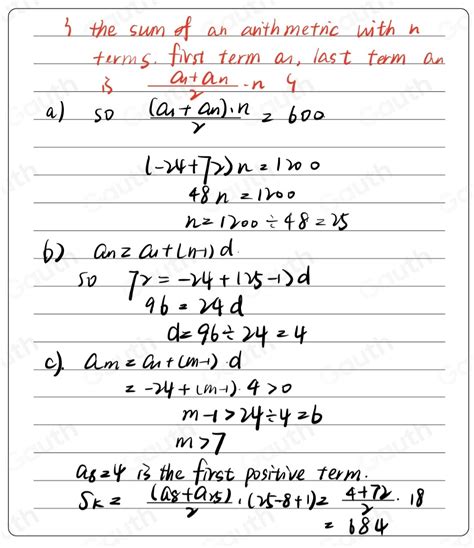 { the sum of an arithmetric with n
terms. first term a₁, last term an
is (a₁+an)/2 · n }
a) so (a₁+an)·n/2 = 600
(-24+72)n=1200
48n=1200
n=1200÷48=25
b) an=a₁+(n-1)d.
so 72=-24+(25-1)d
96=24d
d=96÷24=4
c). am=a₁+(m-1)·d
=-24+(m-1)·4>0
m-1>24÷4=6
m>7
a8=4 is the first positive term.
Sk=(a8+a25)/2·(25-8+1)=(4+72)/2·18
=684